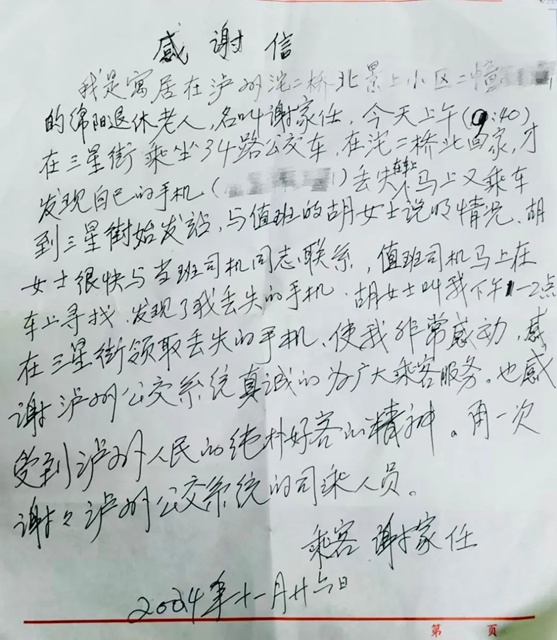 感谢信
我是寓居在泸州沱二桥北景上小区二幢
的绵阳退休老人，名叫谢家任，今天上午(9:40)
在三星街乘坐34路公交车，在沱二桥北回家，才
发现自己的手机()丢失车上，马上又乘车
到三星街始发站，与值班的胡女士说明情况，胡
女士很快与当班司机同志联系，值班司机马上在
车上寻找，发现了我丢失的手机，胡女士叫我下午1-2点
在三星街领取丢失的手机，使我非常感动，感
谢泸州公交系统真诚的为广大乘客服务。也感
受到泸州人民的纯朴好客的精神。再一次
谢々泸州公交系统的司乘人员。
乘客 谢家任
2024年十一月廿六日
第 页